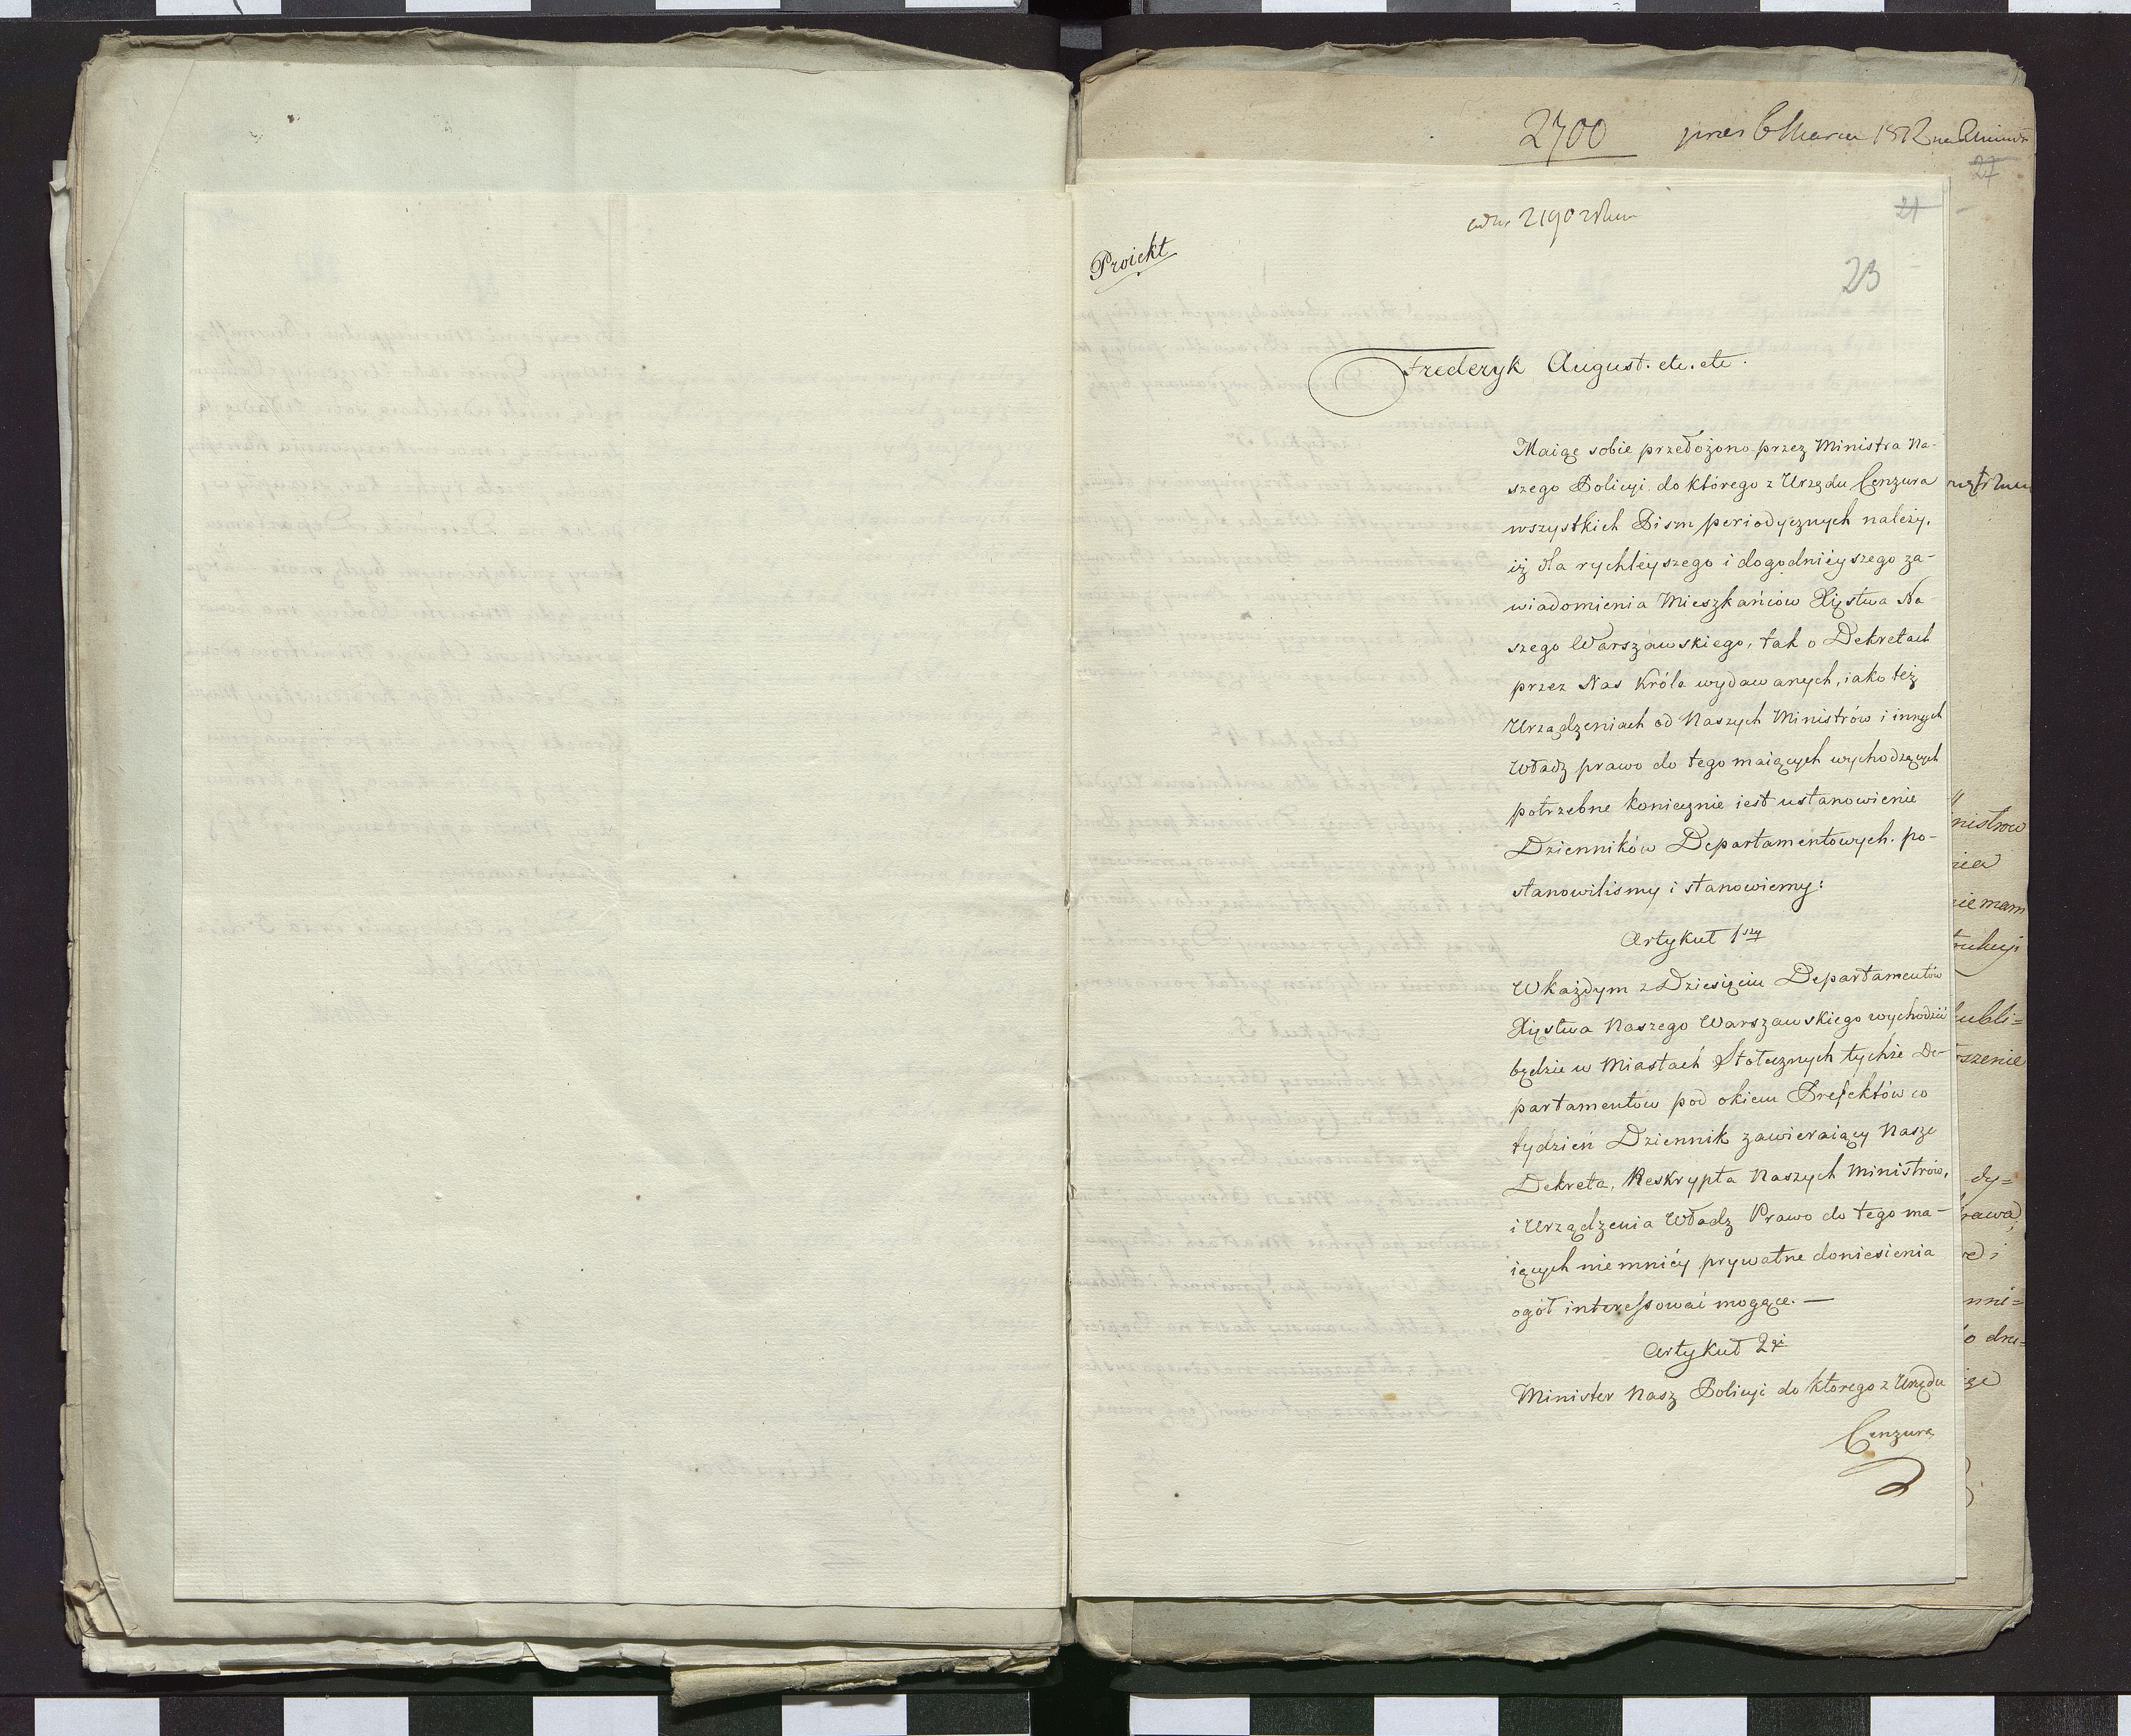 2700
1812
27
21
2190
Proiekt
23
Frederyk August. etc. etc.
Maiąc sobie przedożono przez Ministra Na-
szego Policyi do którego z Urzędu Cenzura
wszystkich Pism periodycznych należy,
iż dla rychleyszego i dogodnieyszego za-
wiadomienia Mieszkańców Xięstwa Na-
szego Warszawskiego, tak o Dekretach
przez Nas Króla wydawanych, iako też
Urządzeniach od Naszych Ministrów i innych
Władz prawo do tego maiących wychodzących
potrzebne koniecznie iest ustanowienie
Dzienników Departamentowych. po-
stanowiliśmy i stanowiemy:
Artykuł 1szy
W każdym z Dziesięciu Departamentów
Xięstwa Naszego Warszawskiego wychodzić
będzie w Miastach Stołecznych tychże De-
partamentów pod okiem Prefektów co
tydzień Dziennik zawieraiący Nasze
Dekreta, Reskrypta Naszych Ministrów,
i Urządzenia Władz Prawo do tego ma-
iących niemniéy prywatne doniesienia
ogół interessować mogące. —
Artykuł 2gi
Minister Nasz Policyi do którego z Urzędu
Cenzura
nistrow
nie mam
ubli=
szenie
dy=
rawa
nni=
o dru=